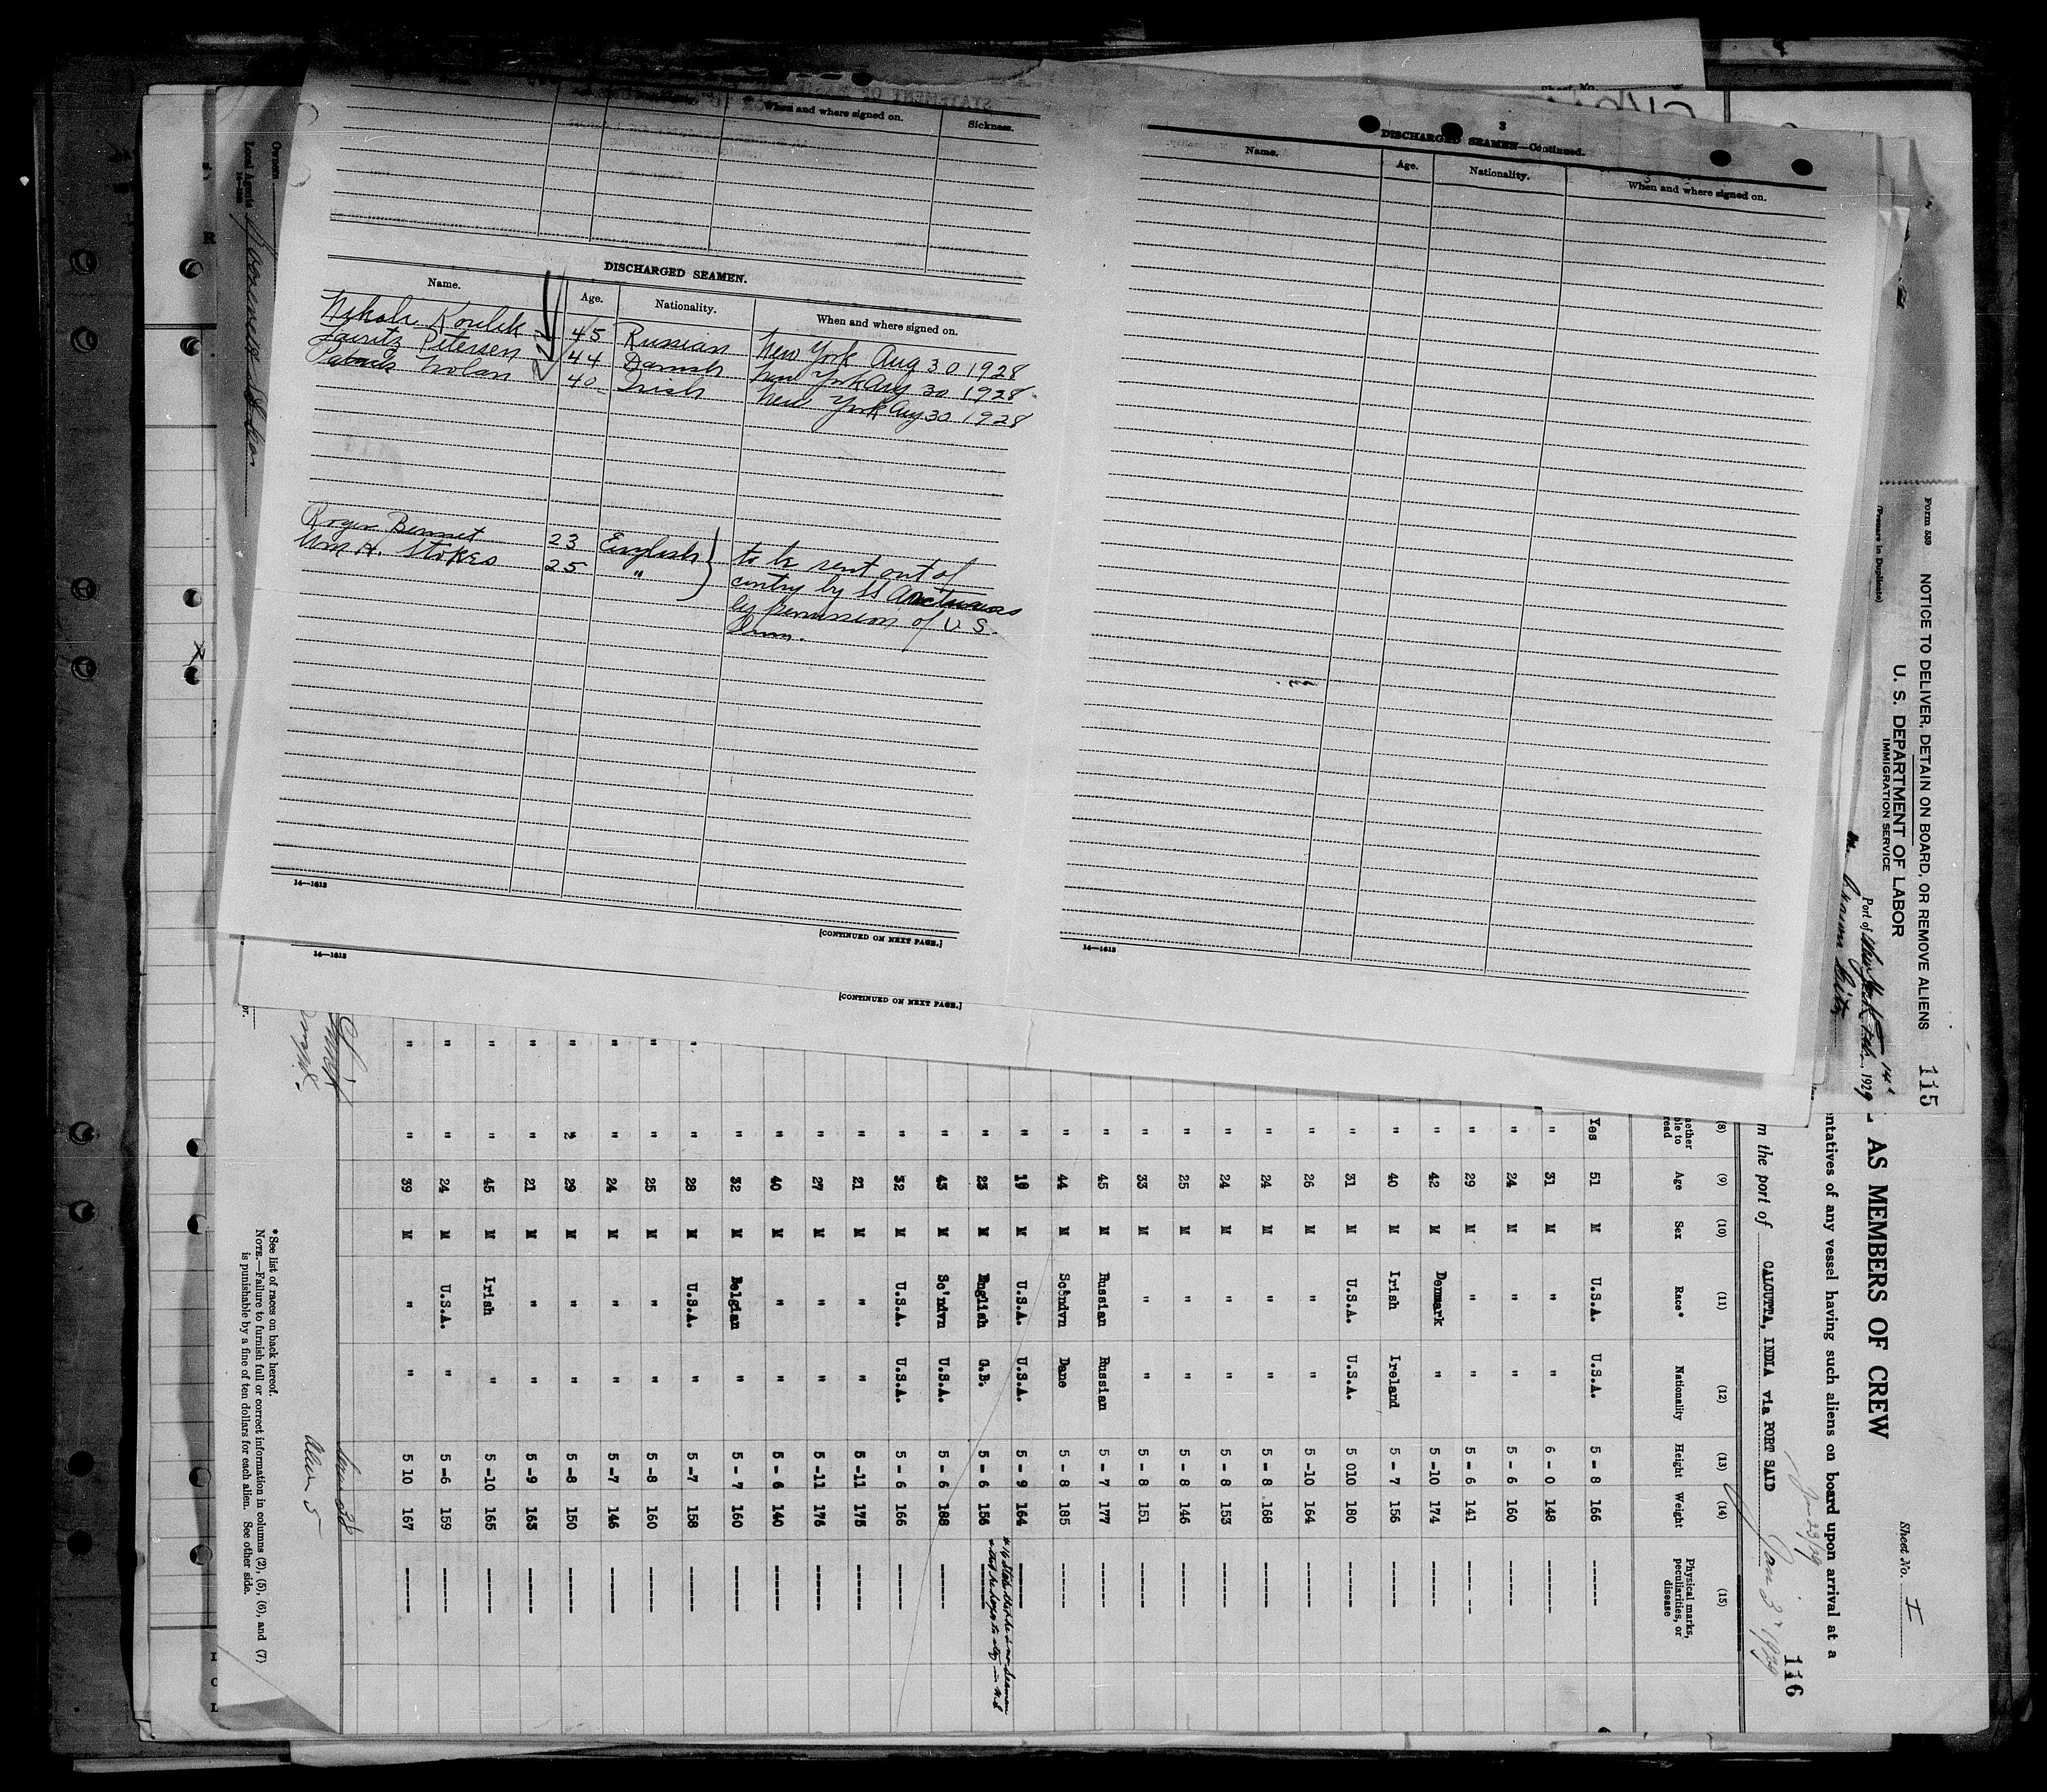 Sheet No.
Name.
Age.
Nationality.
When and where signed on.
Sickness.
DISCHARGED SEAMEN.
Name. Age. Nationality. When and where signed on.
Nikola Koulik 45 Russian New York Aug 30 1928
Lauritz Petersen 44 Danish New York Aug 30 1928
Patrick Nolan 40 Irish New York Aug 30 1928
Roger Bennet 23 English to be sent out of
Wm H. Stokes 25 " cntry by SS Arcturus
by permission of U. S.
Imm.
14—1613
[CONTINUED ON NEXT PAGE.]
14—1613
[CONTINUED ON NEXT PAGE.]
3
DISCHARGED SEAMEN—Continued.
Name. Age. Nationality. When and where signed on.
14—1613
Owners
Local Agents
Form 539 NOTICE TO DELIVER, DETAIN ON BOARD, OR REMOVE ALIENS 115
U. S. DEPARTMENT OF LABOR
IMMIGRATION SERVICE
(Prepare in Duplicate)
Port of New York Feb. 14th, 1929
Sheet No. I
AS MEMBERS OF CREW
ntatives of any vessel having such aliens on board upon arrival at a
116
m the port of CALCUTTA, INDIA via PORT SAID Jan 3rd 1929
Jan 23/29
(8) (9) (10) (11) (12) (13) (14) (15)
hether ble to read Age Sex Race* Nationality Height Weight Physical marks, peculiarities, or disease
Yes 51 M U.S.A. U.S.A. 5 - 8 166 ------
" 31 M " " 6 - 0 148 ------
" 24 M " " 5 - 6 160 ------
" 29 M " " 5 - 6 141 ---- --
" 42 M Denmark " 5 -10 174 ------
" 40 M Irish Ireland 5 - 7 156 ------
" 31 M U.S.A. U.S.A. 5 010 180 ------
" 26 M " " 5 -10 164 ------
" 24 M " " 5 - 8 168 ------
" 24 M " " 5 - 8 153 ------
" 25 M " " 5 - 8 146 ------
" 33 M " " 5 - 8 151 ------
" 45 M Russian Russian 5 - 7 177 ------
" 44 M Sc'ndvn Dane 5 - 8 185 ------
" 19 M U.S.A. U.S.A. 5 - 9 164 ------
" 23 M English G.B. 5 - 6 156 ------
" 43 M Sc'ndvn U.S.A. 5 - 6 188 ------
" 32 M U.S.A. U.S.A. 5 - 6 166 ------
" 21 M " " 5 -11 175 ------
" 27 M " " 5 -11 176 ------
" 40 M " " 5 - 6 140 ------
" 32 M Belgian " 5 - 7 160 ------
" " 28 M U.S.A. " 5 -7 158 ------
" " 25 M " " 5 -8 160 ------
" " 24 M " " 5 -7 146 ------
" " 29 M " " 5 -8 150 ------
" " 21 M " " 5 -9 163 ------
" " 45 M Irish " 5 -10 165 ------
" " 24 M U.S.A. " 5 -6 159 ------
" " 39 M " " 5 10 167 ------
*See list of races on back hereof.
NOTE.—Failure to furnish full or correct information in columns (2), (5), (6), and (7)
is punishable by a fine of ten dollars for each alien. See other side.
Alien 5